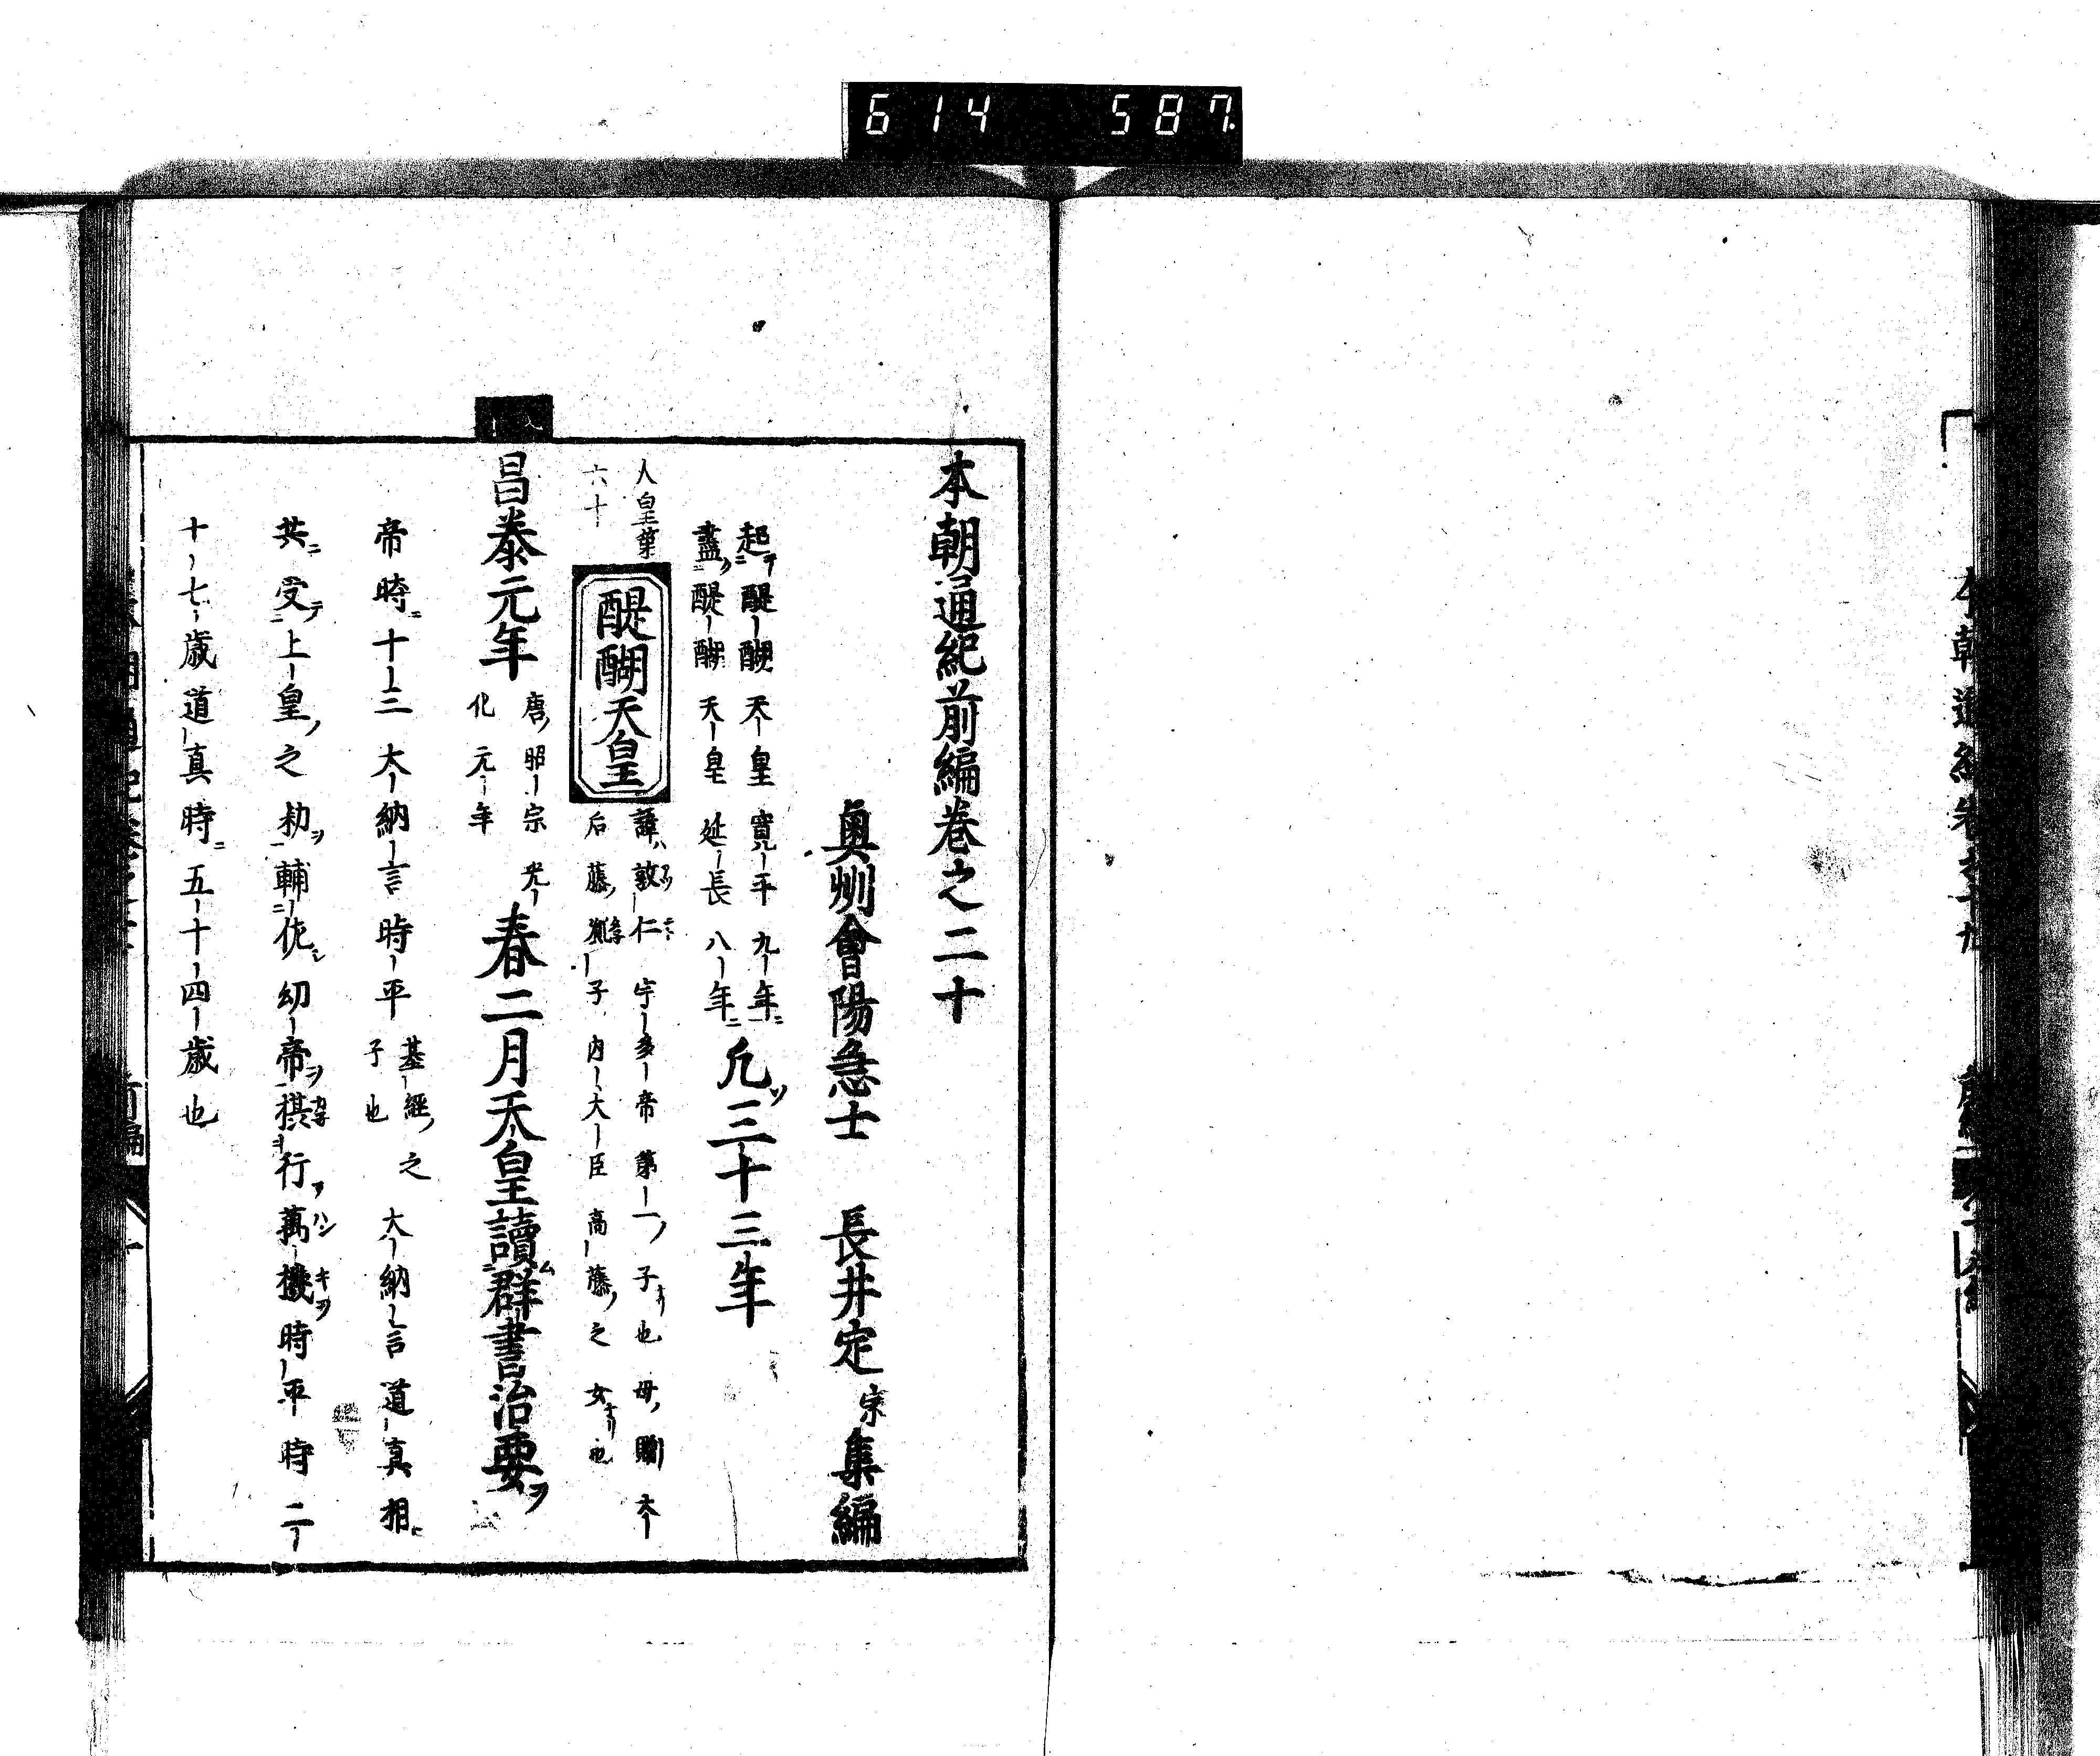 614 587
本朝通紀前編巻之二十
奥州會陽急士 長井定宗集編
起醍醐天皇寛平九年
盡醍醐天皇延長八年
凡三十三年
人皇第
六十
醍醐天皇
諱敦仁宇多帝第一子也母贈太
后藤胤子内大臣高藤之女也
昌泰元年
唐昭宗光
化元年
春二月天皇讀群書治要
帝時十三大納言時平
基經之
子也
大納言道真相
共受上皇之勅輔佐幼帝摂行萬機時平時二
十七歳道真時五十四歳也